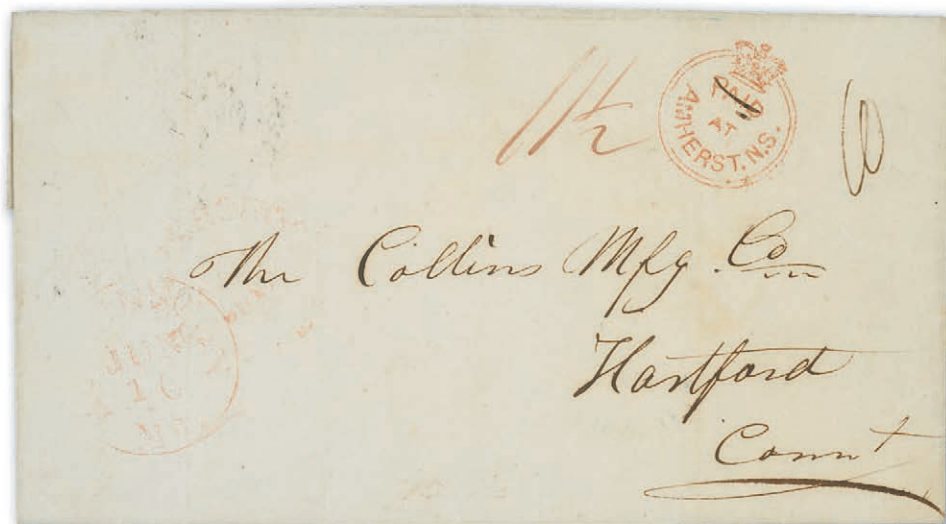 11½
PAID AT AMHERST. N.S.
The Collins Mfg. Co
Hartford
Connt